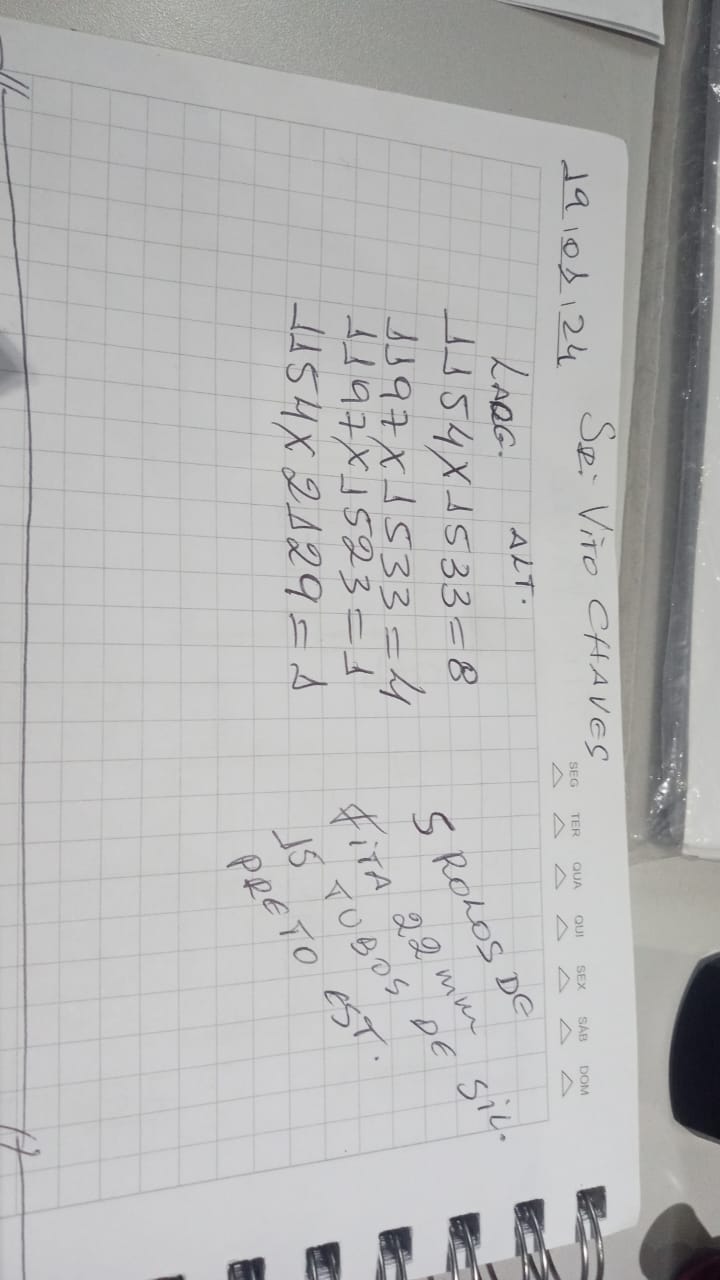 19 / 01 / 24
Sr. VITO CHAVES
SEG TER QUA QUI SEX SÁB DOM
LARG. ALT.
1154 X 1533 = 8
1197 X 1533 = 4
1197 X 1523 = 1
1154 X 2129 = 1
5 ROLOS DE
FITA 22mm
15 TUBOS DE SIL.
PRETO EST.